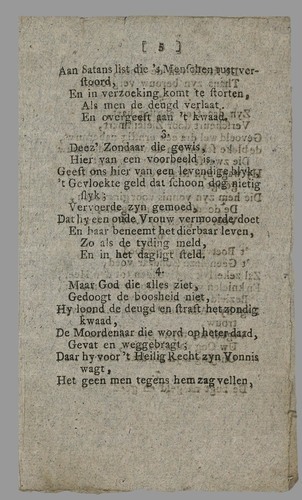 [ 5 ]
Aan Satans list die 's Menschen rust ver-
stoord,
En in verzoeking komt te storten,
Als men de deugd verlaat.
En overgeeft aan 't kwaad.
3.
Deez' Zondaar die gewis,
Hier van een voorbeeld is,
Geeft ons hier van een levendige blyk,
't Gevloekte geld dat schoon dog nietig
slyk;
Vervoerde zyn gemoed,
Dat hy een oude Vrouw vermoorde doet
En haar beneemt het dierbaar leven,
Zo als de tyding meld,
En in het dagligt steld.
4.
Maar God die alles ziet,
Gedoogt de boosheid niet,
Hy loond de deugd en straft het zondig
kwaad,
De Moordenaar die word op heter daad,
Gevat en weggebragt;
Daar hy voor 't Heilig Recht zyn Vonnis
wagt,
Het geen men tegens hem zag vellen,